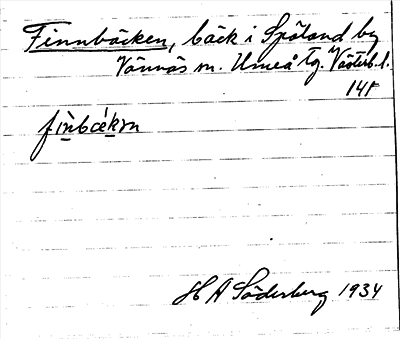 Finnbäcken, bäck i Spöland by
Vännäs sn. Umeå tg. Västerb. l.
141
finbäkən
H A Söderberg 1934